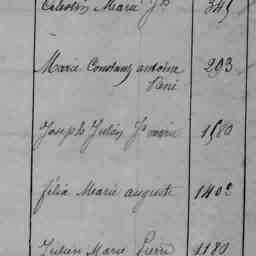 Celestin Marie Jh 345
Marie Constant antoine 293
René
Joseph Julien Fs marie 1580
félix Marie auguste 1402
Julien Marie Pierre 1180